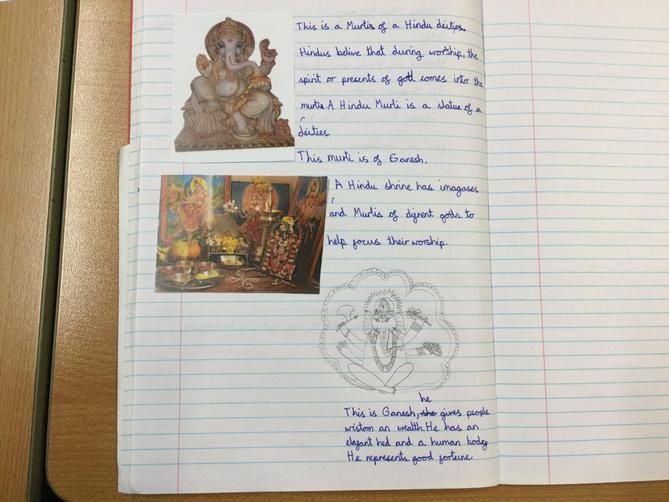 This is a Murtis of a Hindu deities.
Hindus belive that during worship, the
spirit or presents of god comes into the
murtis. A Hindu Murti is a statue of a
deities
This murti is of Ganesh.
A Hindu shrine has imagases
and Murtis of difrent gods to
help focus their worship.
he
This is Ganesh, she gives people
wistom an wealth. He has an
elejant hed and a human body
He represents good fortune.